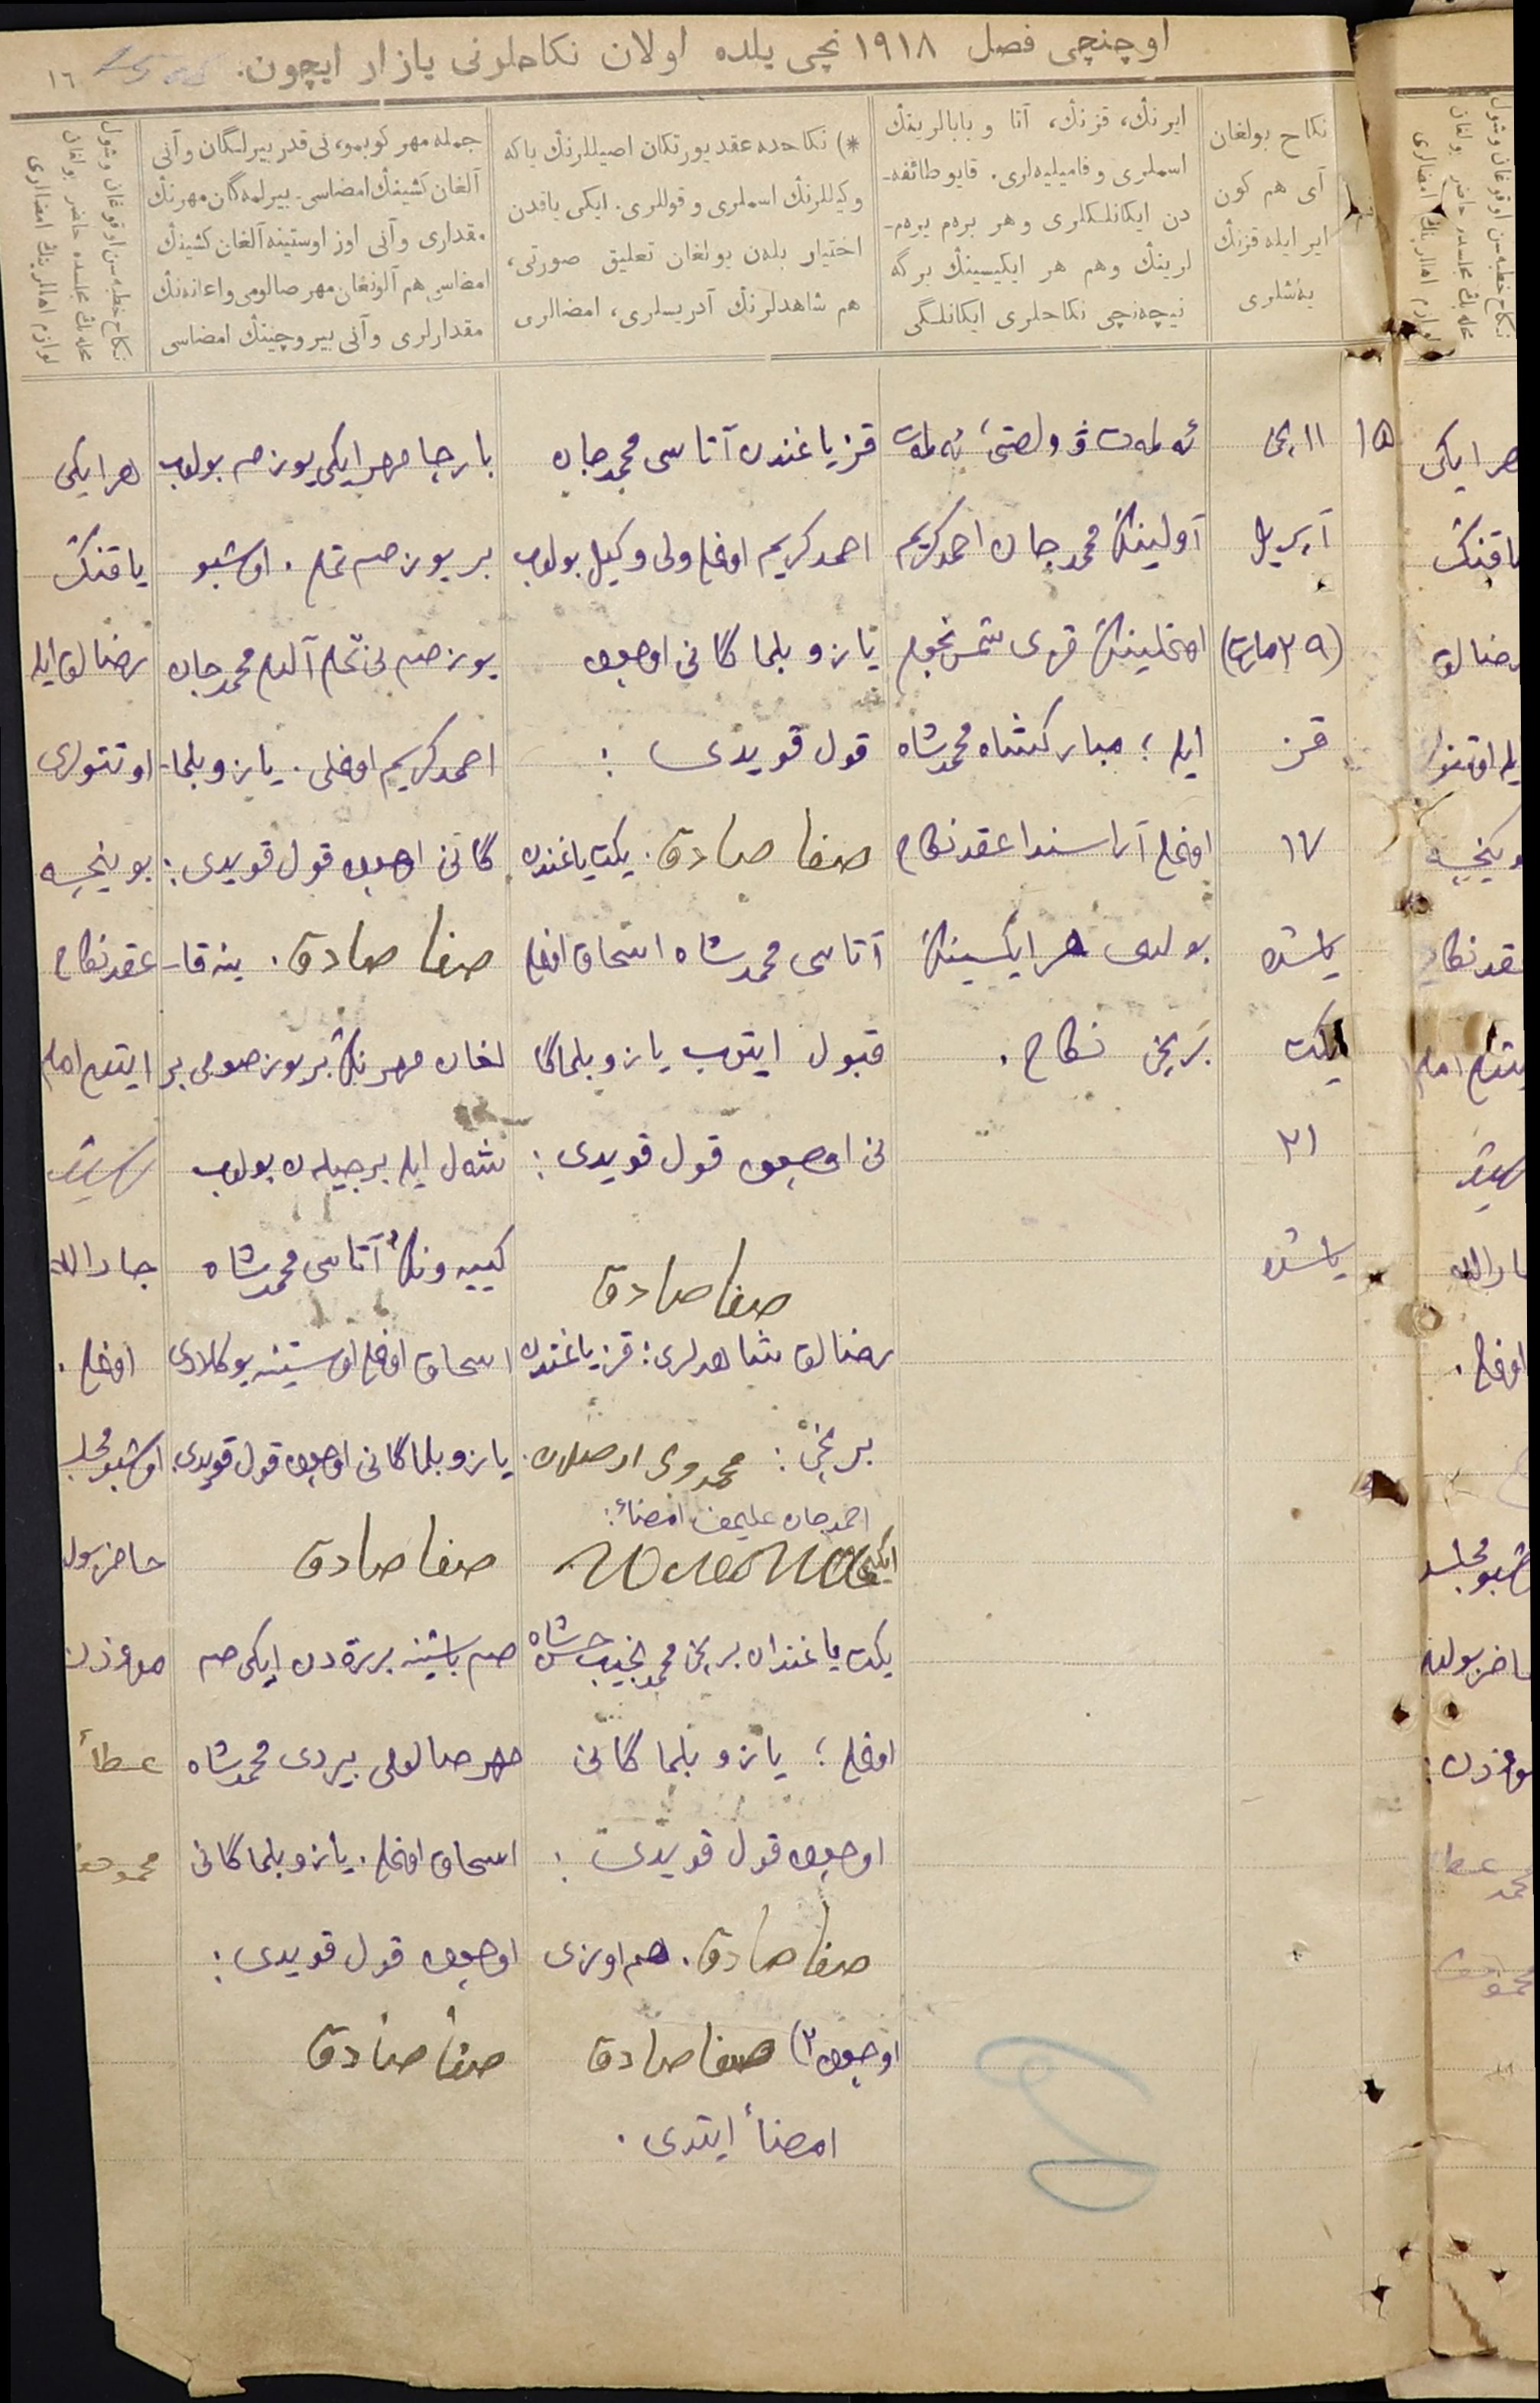 اوچنچی فصل ١٩١٨ نچی یلده اولان نکاحلرنی یازار ایچون.
١٦
نکاح بولغان
آی هم کون
ایر ایله قزنڭ
یەشلری
ایرنڭ، قزنڭ، آتا و بابالرینڭ
اسملری و فامیلیەلری. قایو طائفه‌ـ
دن ایکانلکلری و هر برەم یرەم‌ـ
لرینڭ وهم هر ایکیسینڭ برگه
نیچەنچی نکاحلری ایکانلگی
*) نکاحده عقد یورتکان اصیللرنڭ یاکه
وکیللرنڭ اسملری و قوللری. ایکی یاقدن
اختیار بلەن بولغان تعلیق صورتی،
هم شاهدلرنڭ آدریسلری، امضالری
جمله مهر کوبمو، نی قدر بیرلگان وآنی
آلغان کشینڭ امضاسی. بیرلمه‌گان مهرنڭ
مقداری وآنی اوز اوستینه آلغان کشینڭ
امضاسی هم آلونغان مهر صالومی واعانه‌نڭ
مقدارلری وآنی بیروچینڭ امضاسی
نکاح خطبه‌سن اوقوغان وشول
محله‌نڭ مجلسده حاضر بولغان
لوازم اهاللرینڭ امضالری
١٥
١١ نچی
آپریل
(٢٩ مارت)
قز
١٧
یاشده
یکت
٢١
یاشده
ئه‌لمه‌ت ڤولصتی، ئه‌لمت
آولینڭ محمدجان احمدکریم
اوغلینڭ قزی شمس نجوم
ایله ؛ مبارکشاه محمدشاه
اوغلی آراسندا عقد نکاح
بولدی هر ایکسینڭ
برنچی نکاح.
قز یاغندن آتاسی محمدجان
احمدکریم اوغلی ولی وکیل بولوب
یازو بلماگانی اوچون
قول قویدی :
صفا صادق. یکت یاغندن
آتاسی محمدشاه اسحاق اوغلی
قبول ایتوب یازو بلماگا
نی اوچون قول قویدی :
صفا صادق
رضالق شاهدلری : قز یاغندن
برنچی : محمدولی ارصلان.
احمدجان علیموف امضاء :
ایکنچی
یکت یاغندان برنچی محمدنجیب حسن شاه
اوغلی ؛ یازو بلماگانی
اوچون قول قویدی :
صفا صادق. هم اوزی
اوچون (٢ صفا صادق
امضاء ایتدی.
بارچا مهر ایکی یوز صم بولوب
بر یوز صم تمام. اوشبو
یوز صم نی تمام آلدم محمدجان
احمدکریم اوغلی. یازو بلما-
گانی اوچون قول قویدی :
صفا صادق. ینه قا-
لغان مهرنڭ بر یوز صومی بر
شەل ایله بر جیلەن بولوب
کییەونڭ آتاسی محمدشاه
اسحاق اوغلی اوستینه یوکلادی
یازو بلماگانی اوچون قول قویدی:
صفا صادق
صم باشینه بررته‌دن ایکی صم
مهر صالومی بیردی محمدشاه
اسحاق اوغلی. یازو بلماگانی
اوچون قول قویدی :
صفا صادق
هر ایکی
یاقنڭ
رضالق ایله
اوتنولری
بوینچه
عقد نکاح
ایتدم امام
جارالله
اوغلی.
اوشبو مجلسده
حاضر بول
موءذن
عطاء